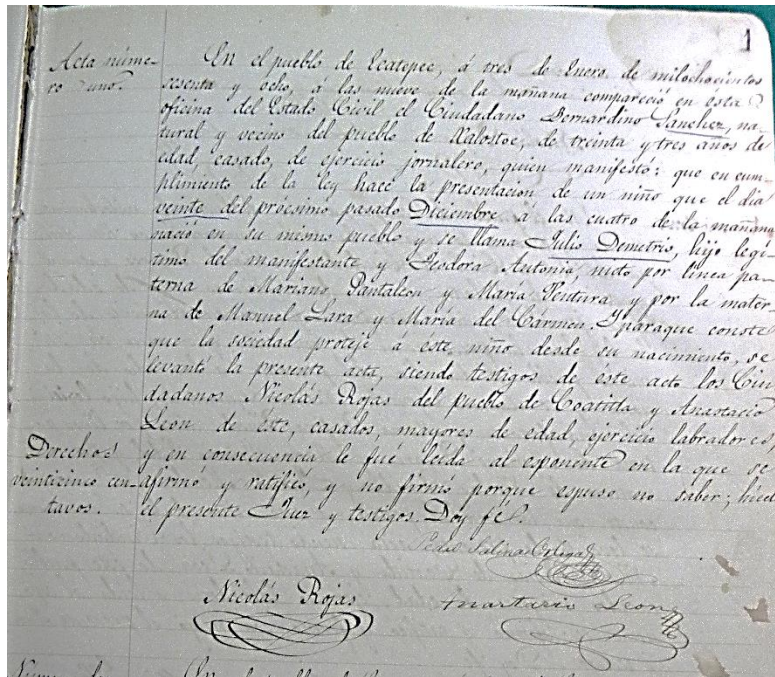 1
Acta núme-
ro uno.
En el pueblo de Ecatepec, á tres de Enero de milochocientos
sesenta y ocho, á las nueve de la mañana compareció en ésta
oficina del Estado Civil el Ciudadano Bernardino Sanchez, na-
tural y vecino del pueblo de Xalostoc, de treinta y tres años de
edad, casado, de ejercicio jornalero, quien manifestó: que en cum-
plimiento de la ley hace la presentacion de un niño que el dia
veinte del procsimo pasado Diciembre á las cuatro de la mañana
nació en su mismo pueblo y se llama Julio Demetrio, hijo legi-
timo del manifestante y Teodora Antonia, nieto por linea pa-
terna de Mariano Pantaleon y María Ventura y por la mater-
na de Manuel Lara y María del Cármen. Y paraque conste
que la sociedad proteje á este niño desde su nacimiento, se
levantó la presente acta, siendo testigos de éste acto los Ciu
dadanos Nicolás Rojas del pueblo de Coatitla y Anastacio
Leon de éste, casados, mayores de edad, ejercicio labradores,
y en consecuencia le fué leida al esponente en la que se
afirmó y ratificó, y no firmó porque espuso no saber; hícelo
el presente Juez y testigos. Doy fé.
Derechos
veinticinco cen-
tavos.
Pedro Salinas
Nicolás Rojas
Anastacio Leon